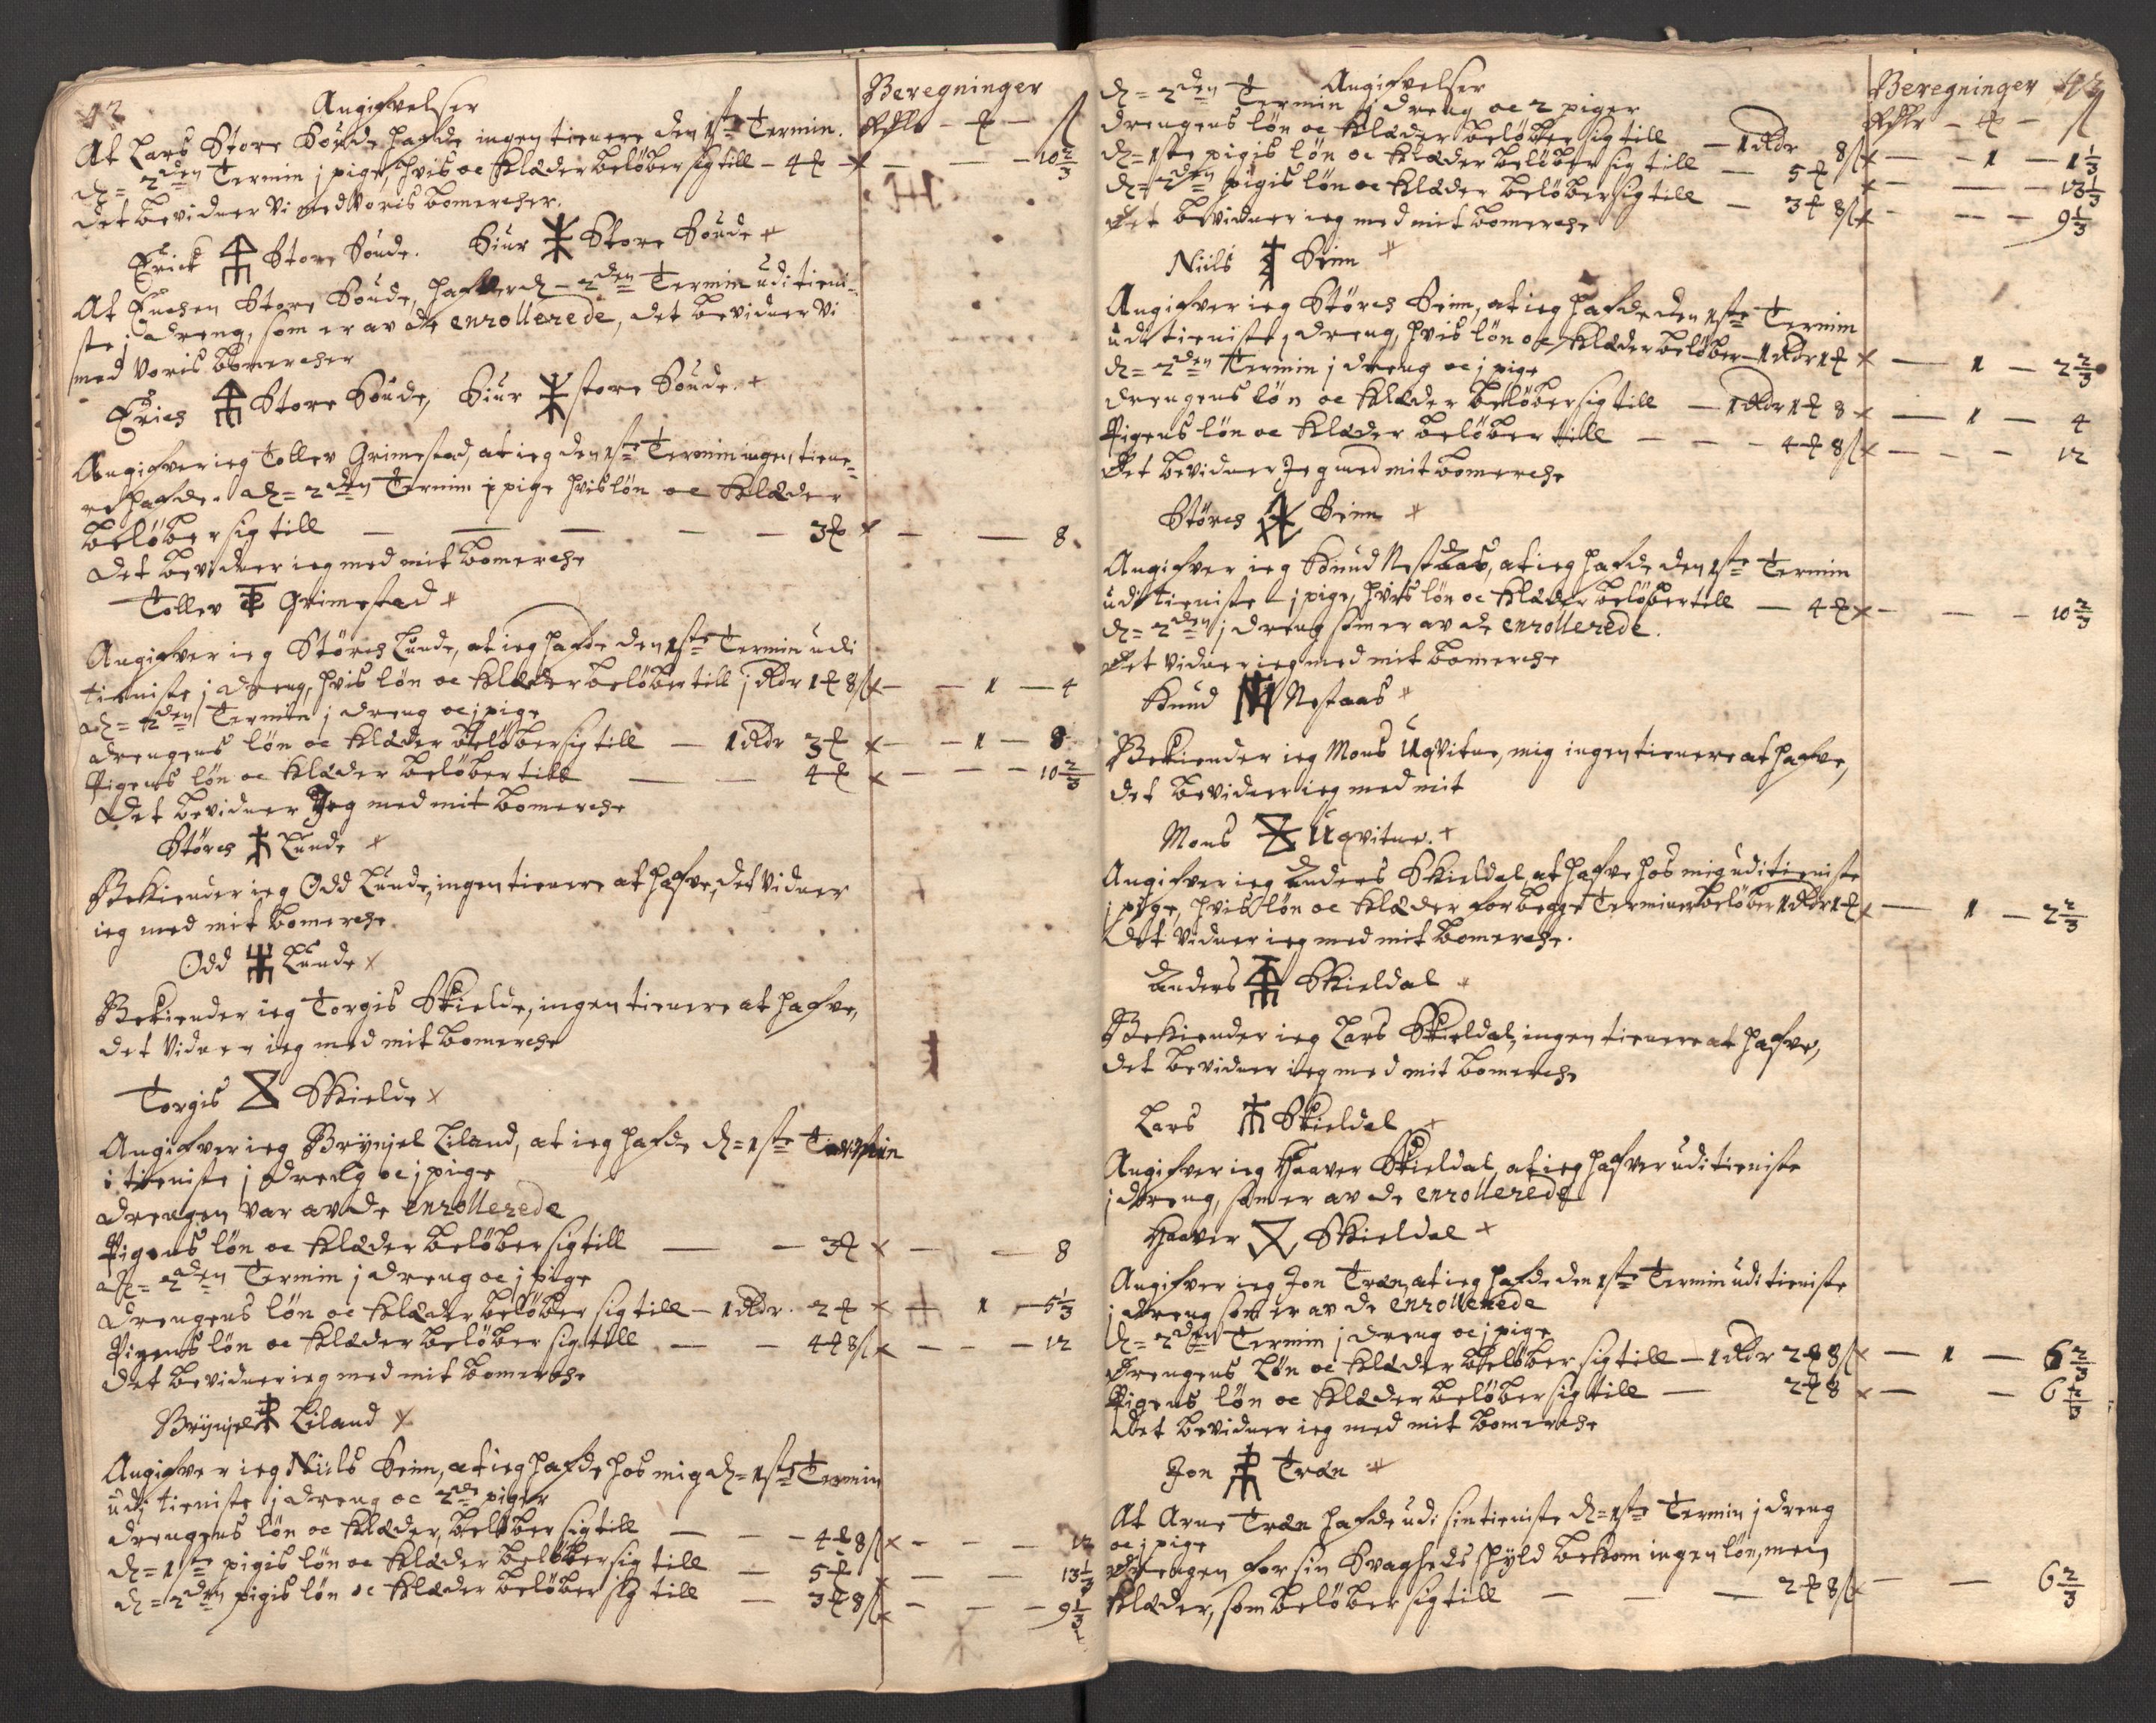 Angifvelser
Beregninger
At Lars Store Soude hafde ingen tienere den 1ste Termin.
d= 2den Termin j pige, hvis oc Klæder beløber sig till - 4 ₰ × - - - 10 2/3
det bevidner Vi med Voris bomercher.
Erick Store Soude. Siur Store Soude
At Store Soude, hafver d= 2den Termin udi tieni-
ste j dreng, som er av de enrollerede, det bevidner Vi
med Voris bomercher
Erich Store Soude, Siur Store Soude.
Angifver ieg Tollev Grimestad, at ieg den 1ste Termin ingen tiene-
re hafde. d= 2den Termin j pige hvis løn oc Klæder
beløber sig till - - - - - 3 ₰ × - - 8
det bevidner ieg med mit bomerche
Tollev Grimestad
Angifver ieg Størch Lunde, at ieg hafde den 1ste Termin udi
tieniste j dreng, hvis løn oc Klæder beløber till j Rdr 1 ₰ 8 s × - - 1 - 4
d= 2den Termin j dreng oc j pige
drengens løn oc Klæder beløber sig till - 1 Rdr 3 ₰ × - - 1 - 8
Pigens løn oc Klæder beløber till - - 4 ₰ × - - - 10 2/3
Det bevidner Jeg med mit bomerche
Størch Lunde
Bekiender ieg Odd Lunde, ingen tienere at hafve, det Vidner
ieg med mit bomerche
Odd Lunde
Bekiender ieg Torgis Skielde, ingen tienere at hafve,
det Vidner ieg med mit bomerche
Torgis Skielde
Angifver ieg Brynjel Liland, at ieg hafde d= 1ste Termin
i tieniste j dreng oc j pige
drengen var av de enrollerede
Pigens løn oc Klæder beløber sig till - - 3 ₰ × - - 8
d= 2den Termin j dreng oc j pige
drengens løn oc Klæder beløber sig till - 1 Rdr. 2 ₰ × - 1 - 5 1/3
Pigens løn oc Klæder beløber sig till - - 4 ₰ 8 s × - - - 12
det bevidner ieg med mit bomerche
Brynjel Liland
Angifver ieg Niils Seim, at ieg hafde hos mig d= 1ste Termin
udi tieniste j dreng oc 2de piger
drengens løn oc Klæder, beløber sig till - - - 4 ₰ 8 s × - - - 12
d= 1ste pigis løn oc Klæder beløber sig till - 5 ₰ × - - 13 1/3
d= 2den pigis løn oc Klæder beløber sig till - 3 ₰ 8 s × - - - 9 1/3
Angifvelser
Beregninger
d= 2den Termin j dreng oc 2 piger
drengens løn oc Klæder beløber sig till - 1 Rdr 8 s × - - 1 - 1 1/3
d= 1ste pigis løn oc Klæder beløber sig till - 5 ₰ × - - - 13 1/3
d= 2den pigis løn oc Klæder beløber sig till - 3 ₰ 8 s × - - - 9 1/3
Det bevidner ieg med mit bomerche
Niils Seim
Angifver ieg Størch Seim, at ieg hafde den 1ste Termin
udi tieniste j dreng, hvis løn oc Klæder beløber - 1 Rdr 1 ₰ × - 1 - 2 2/3
d= 2den Termin j dreng oc j pige
drengens løn oc Klæder beløber sig till - 1 Rdr 1 ₰ 8 × - 1 - 4
Pigens løn oc Klæder beløber till - - - 4 ₰ 8 s × - - - 12
Det bevidner Jeg med mit bomerche
Størch Seim
Angifver ieg Knud Nestaas, at ieg hafde den 1ste Termin
udi tieniste - j pige, hvis løn oc Klæder beløber till - 4 ₰ × - - - 10 2/3
d= 2den j dreng som er av de enrollerede.
Det Vidner ieg med mit bomerche
Knud Nestaas
Bekiender ieg Mons Uqvitne, mig ingen tienere at hafve,
det bevidner ieg med mit
Mons Uqvitne.
Angifver ieg Anders Skieldal, at hafve hos mig udi tieniste
j pige, hvis løn oc Klæder for begge Terminer beløber 1 Rdr 1 ₰ × - 1 - 2 2/3
Det Vidner ieg med mit bomerche.
Anders Skieldal
Bekiender ieg Lars Skieldal, ingen tienere at hafve,
det bevidner ieg med mit bomerche
Lars Skieldal
Angifver ieg Haaver Skieldal, at ieg hafver udi tieniste
j dreng, som er av de enrollerede
Haaver Skieldal
Angifver ieg Jon Træn, at ieg hafde den 1ste Termin udi tieniste
j dreng som er av de enrollerede
d= 2den Termin j dreng oc j pige
Drengens løn oc Klæder beløber sig till - 1 Rdr 2 ₰ 8 s × - 1 - 6 2/3
Pigens løn oc Klæder beløber sig till - 2 ₰ 8 × - - 6 2/3
Det bevidner ieg med mit bomerche
Jon Træn
At Arne Træn hafde udi sin tieniste d= 1ste Termin j dreng
oc j pige
drengen for sin Svagheds skyld bekom ingen løn, men
Klæder, som beløber sig till - - - 2 ₰ 8 s × - - 6 2/3